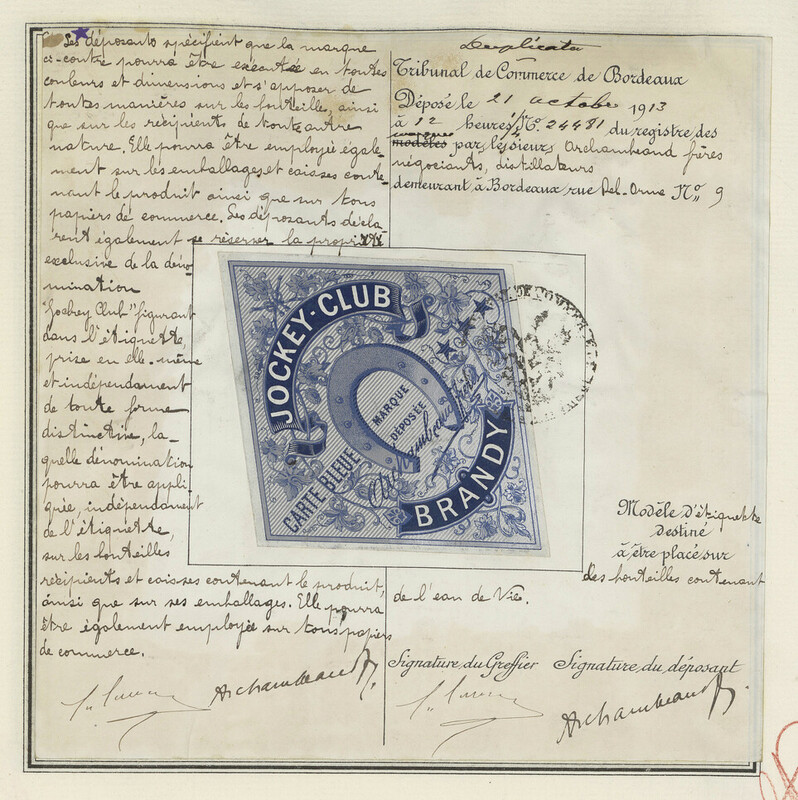 Les déposants spécifient que la marque
ci-contre pourra être exécutée en toutes
couleurs et dimensions et s'apposer de
toutes manières sur les bouteille, ainsi
que sur les récipients de toute autre
nature. Elle pourra être employée égale-
ment sur les emballages et caisses conte-
nant le produit ainsi que sur tous
papiers de commerce. Les déposants décla-
rent également se réserver la propriété
exclusive de la déno-
mination
"Jockey Club" figurant
dans l'étiquette,
prise en elle-même
et indépendament
de toute forme
distinctive, la-
quelle dénomination
pourra être appli-
quée, indépendament
de l'étiquette,
sur les bouteilles
récipients et caisses contenant le produit,
ainsi que sur ses emballages. Elle pourra
être également employée sur tous papiers
de commerce.
Archambeaud
Duplicata
Tribunal de Commerce de Bordeaux
Déposé le 21 octobre 1913
à 12 heures No. 24481 du registre des
marques
modèles par les sieurs Archambeaud frères
négociants, distillateurs
demeurant à Bordeaux rue Pel-Orme No. 9
JOCKEY-CLUB
MARQUE
DÉPOSÉE
Archambeaud
CARTE BLEUE
BRANDY
Modèle d'étiquette
destiné
à être placé sur
des bouteilles contenant
de l'eau de Vie.
Signature du Greffier Signature du déposant
Archambeaud